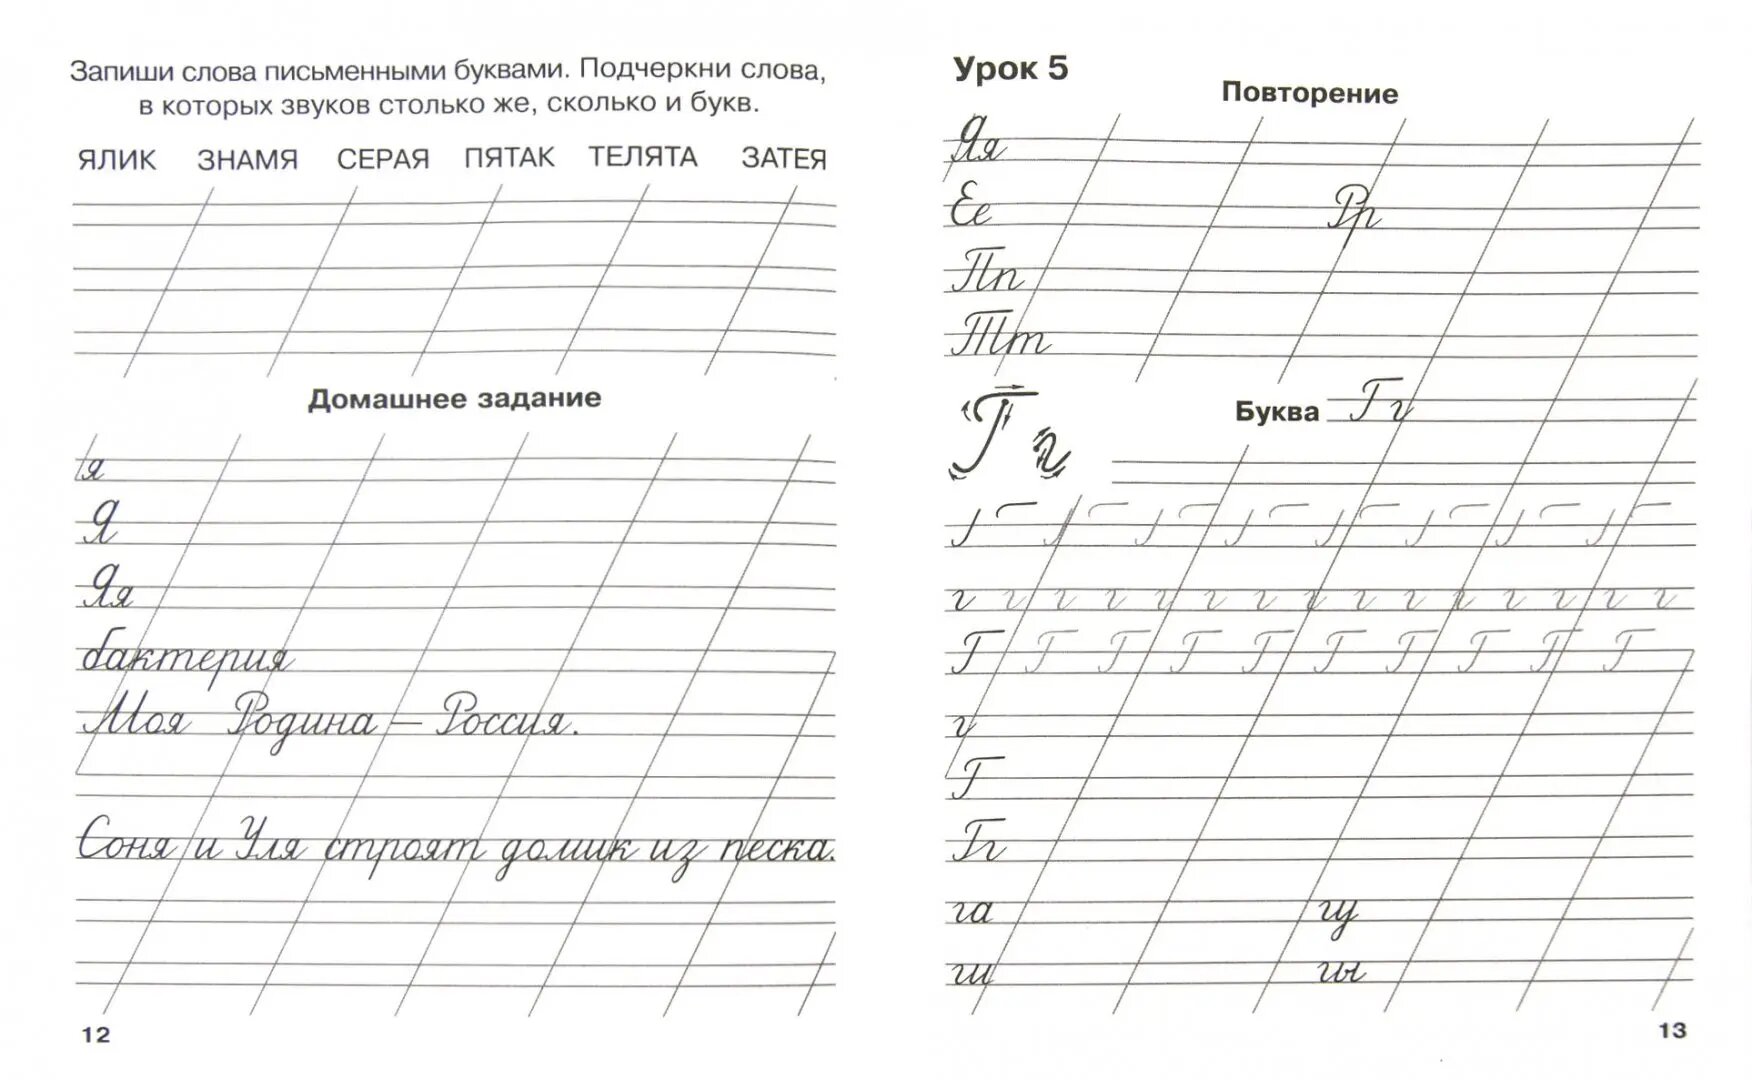 Запиши слова письменными буквами. Подчеркни слова,
в которых звуков столько же, сколько и букв.
ЯЛИК ЗНАМЯ СЕРАЯ ПЯТАК ТЕЛЯТА ЗАТЕЯ
Домашнее задание
я
Я
Яя
бактерия
Моя Родина – Россия.
Соня и Уля строят домик из песка.
12
Урок 5
Повторение
Яя
Ее Рр
Пп
Тт
Г г
Буква Гг
г г г г г г г г г г г г г г г
Г Г Г Г Г Г Г Г Г Г
г
Г
Гг
га гу
ги гы
13